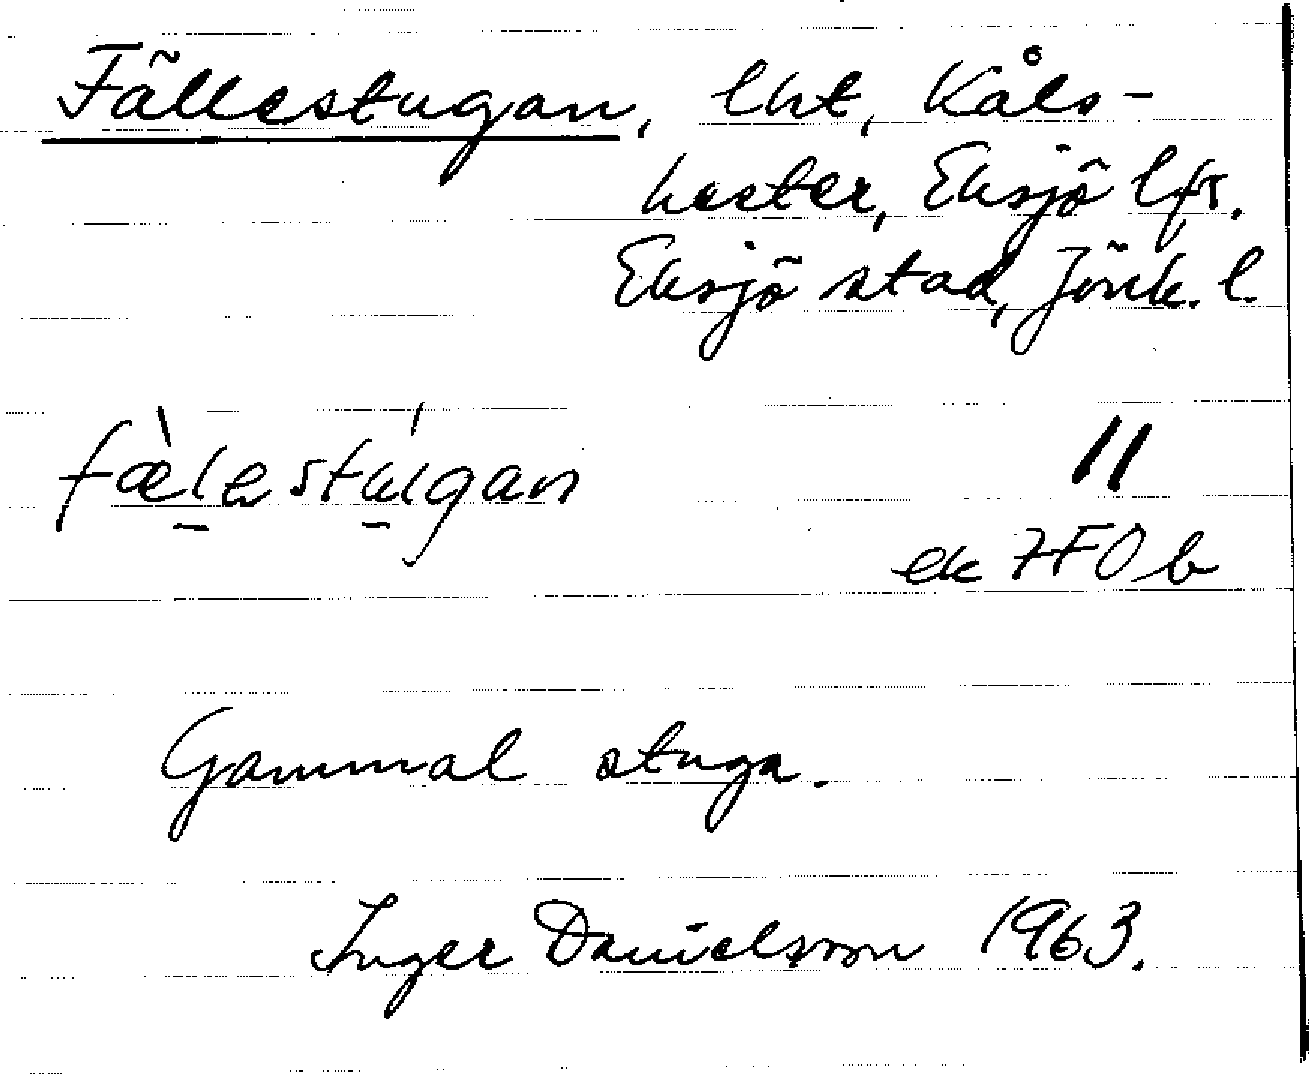 Fällestugan, lht, Kåls-
hester, Eksjö lfs.
Eksjö stad, Jönk. l.
fæ̀lestúgan 11
ek 7F0b
Gammal stuga.
Inger Danielsson 1963.